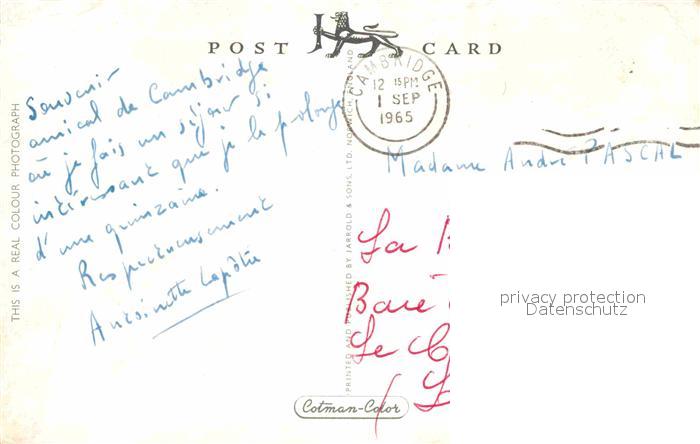 POST CARD
CAMBRIDGE
12 15 PM
1 SEP
1965
Souvenir
amical de Cambridge
où je fais un séjour si
intéressant que je le prolonge
d'une quinzaine.
Respectueusement
Antoinette
Madame André PASCAL
La
Baie
Le
privacy protection
Datenschutz
THIS IS A REAL COLOUR PHOTOGRAPH
PRINTED AND PUBLISHED BY JARROLD & SONS, LTD. NORWICH, ENGLAND
Cotman-Color